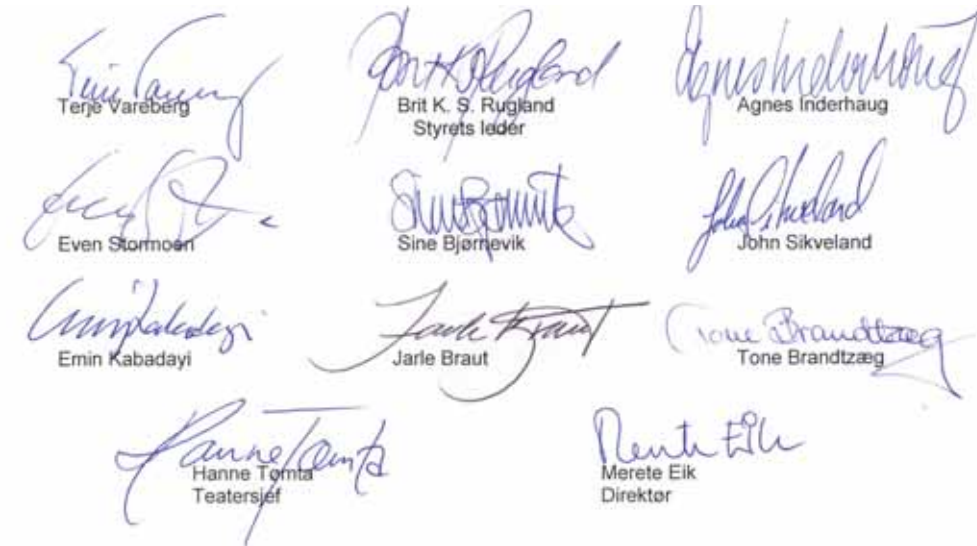 Terje Vareberg
Brit K. S. Rugland
Styrets leder
Agnes Inderhaug
Even Stormoen
Sine Bjørnevik
John Sikveland
Emin Kabadayi
Jarle Braut
Tone Brandtzæg
Hanne Tømta
Teatersjef
Merete Eik
Direktør